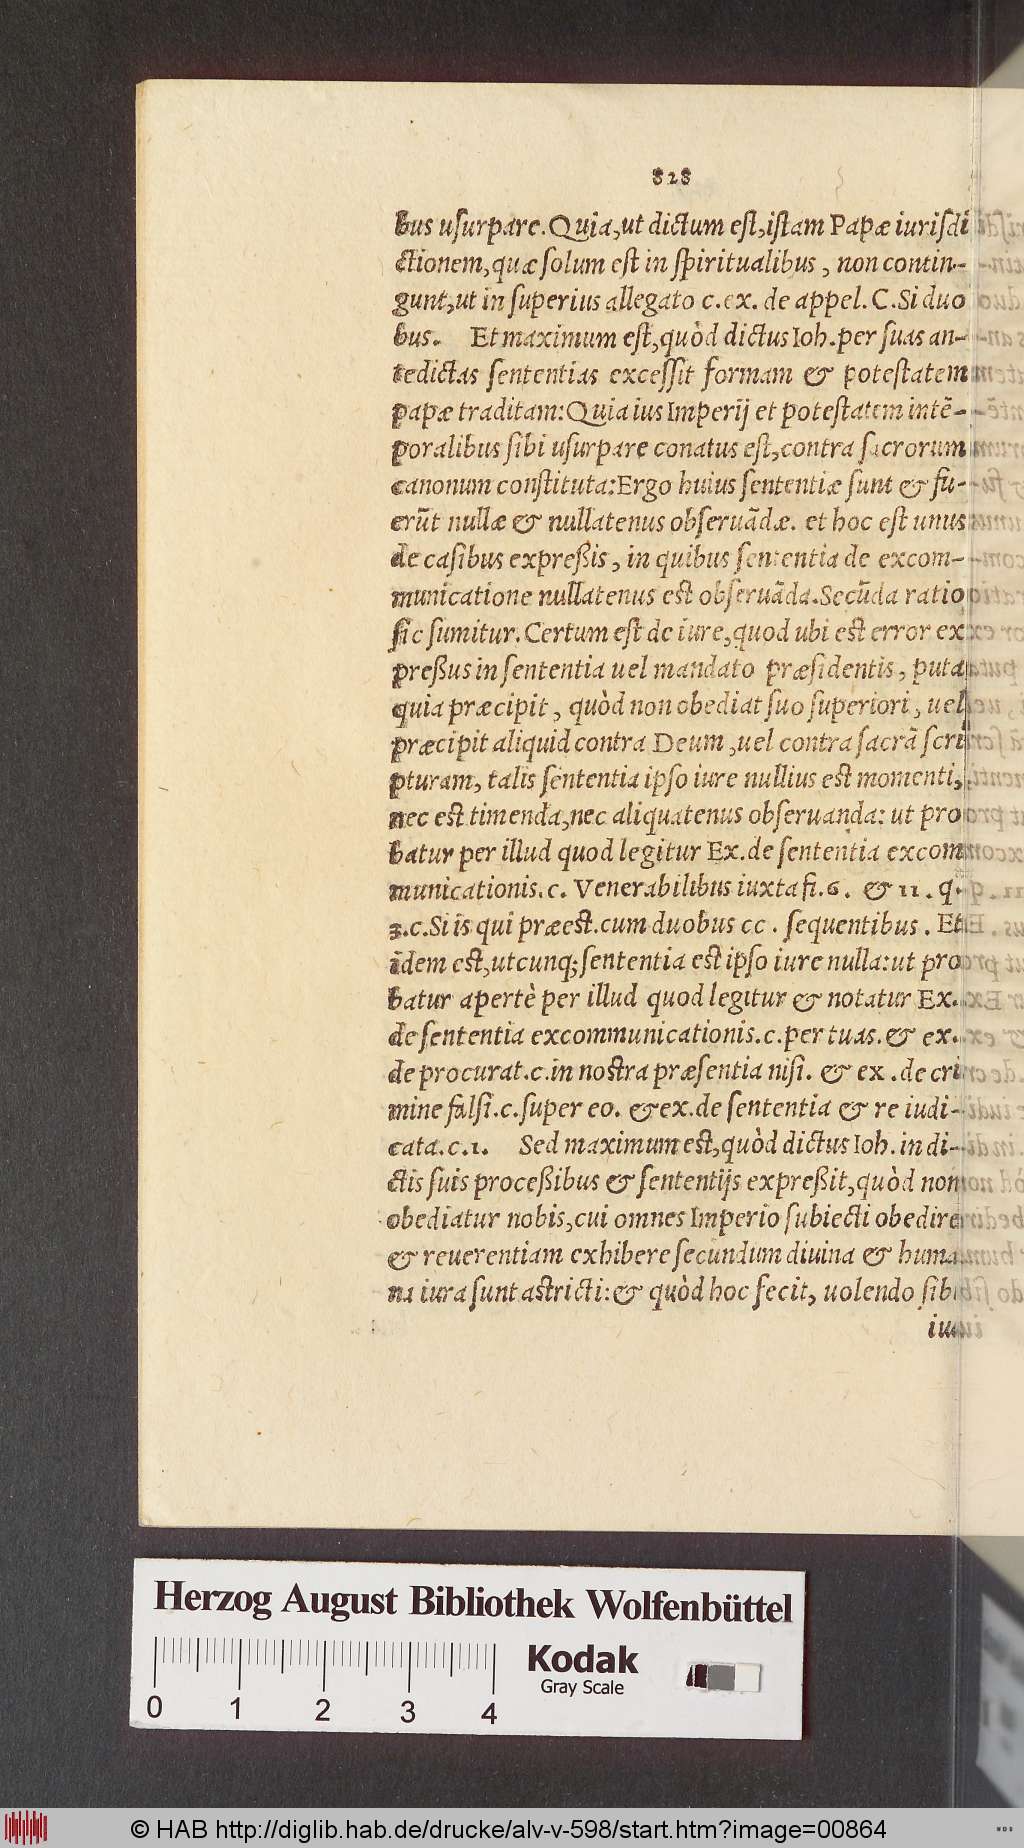 828
bus uſurpare. Quia, ut dictum eſt, iſtam Papæ iuriſdi
ctionem, quæ ſolum eſt in ſpiritualibus, non contin-
gunt, ut in ſuperius allegato c. ex. de appel. C. Si duo
bus. Et maximum eſt, quòd dictus Ioh. per ſuas an-
tedictas ſententias exceſſit formam & poteſtatem
papæ traditam: Quia ius Imperij et poteſtatem in tē-
poralibus ſibi uſurpare conatus eſt, contra ſacrorum
canonum conſtituta: Ergo huius ſententiæ ſunt & fu-
erūt nullæ & nullatenus obſeruādæ. et hoc eſt unus
de caſibus expreßis, in quibus ſententia de excom-
municatione nullatenus eſt obſeruāda. Secūda ratio
ſic ſumitur. Certum eſt de iure, quod ubi eſt error ex
preßus in ſententia uel mandato præſidentis, puta
quia præcipit, quòd non obediat ſuo ſuperiori, uel
præcipit aliquid contra Deum, uel contra ſacrā ſcri
pturam, talis ſententia ipſo iure nullius eſt momenti,
nec eſt timenda, nec aliquatenus obſeruanda: ut pro
batur per illud quod legitur Ex. de ſententia excom
municationis. c. Venerabilibus iuxta fi. 6. & 11. q.
3. c. Si is qui præeſt. cum duobus cc. ſequentibus. Et
idem eſt, utcunq; ſententia eſt ipſo iure nulla: ut pro
batur apertè per illud quod legitur & notatur Ex.
de ſententia excommunicationis. c. per tuas. & ex.
de procurat. c. in noſtra præſentia niſi. & ex. de cri
mine falſi. c. ſuper eo. & ex. de ſententia & re iudi-
cata. c. 1. Sed maximum eſt, quòd dictus Ioh. in di-
ctis ſuis proceßibus & ſententijs expreßit, quòd non
obediatur nobis, cui omnes Imperio ſubiecti obedire
& reuerentiam exhibere ſecundum diuina & huma
na iura ſunt aſtricti: & quòd hoc fecit, uolendo ſibi
Herzog August Bibliothek Wolfenbüttel
Kodak
Gray Scale
0 1 2 3 4
© HAB http://diglib.hab.de/drucke/alv-v-598/start.htm?image=00864